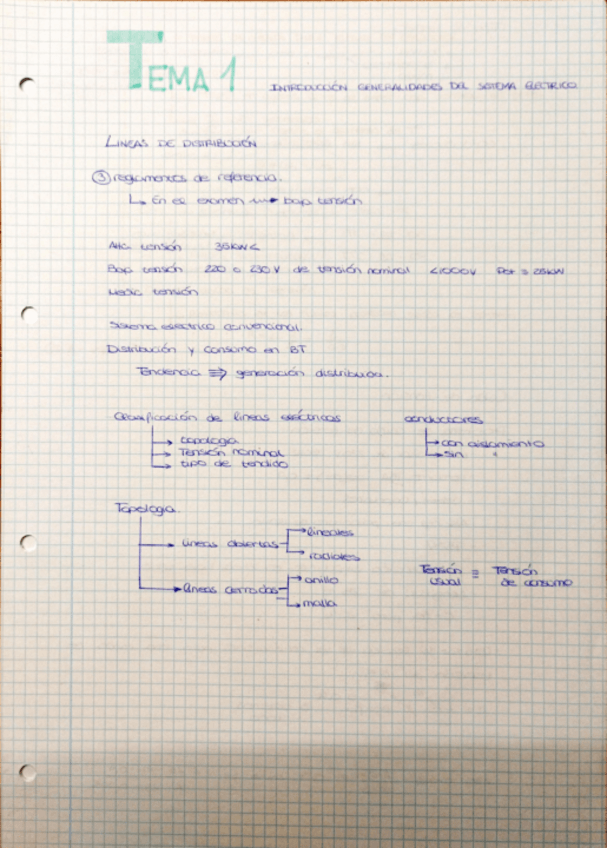 TEMA 1 INTRODUCCIÓN GENERALIDADES DEL SISTEMA ELÉCTRICO
LINEAS DE DISTRIBUCIÓN
③ reglamentos de referencia.
↳ En el examen → baja tensión
Alta tensión 36kW<
Baja tensión 220 o 230 V de tensión nominal <1000V Pot ≤ 25kW
Media tensión
Sistema eléctrico convencional.
Distribución y consumo en BT
Tendencia ⇒ generación distribuida.
Clasificación de lineas eléctricas
→ topologia
→ Tensión nominal
→ tipo de tendido
conductores
→ con aislamiento
→ sin "
Topologia
→ lineas abiertas
→ lineales
→ radiales
→ lineas cerradas
→ anillo
→ malla
Tensión usual ≡ Tensión de consumo